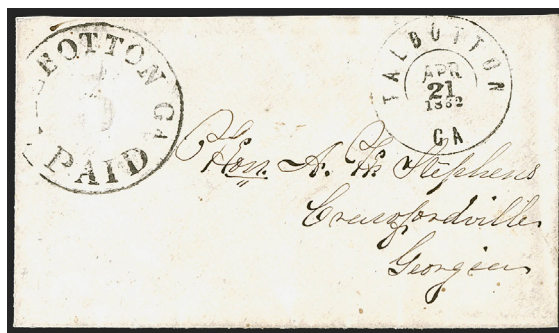 TALBOTTON GA
PAID
TALBOTTON
APR
21
1862
GA
Hon. A. H. Stephens
Crawfordville
Georgia